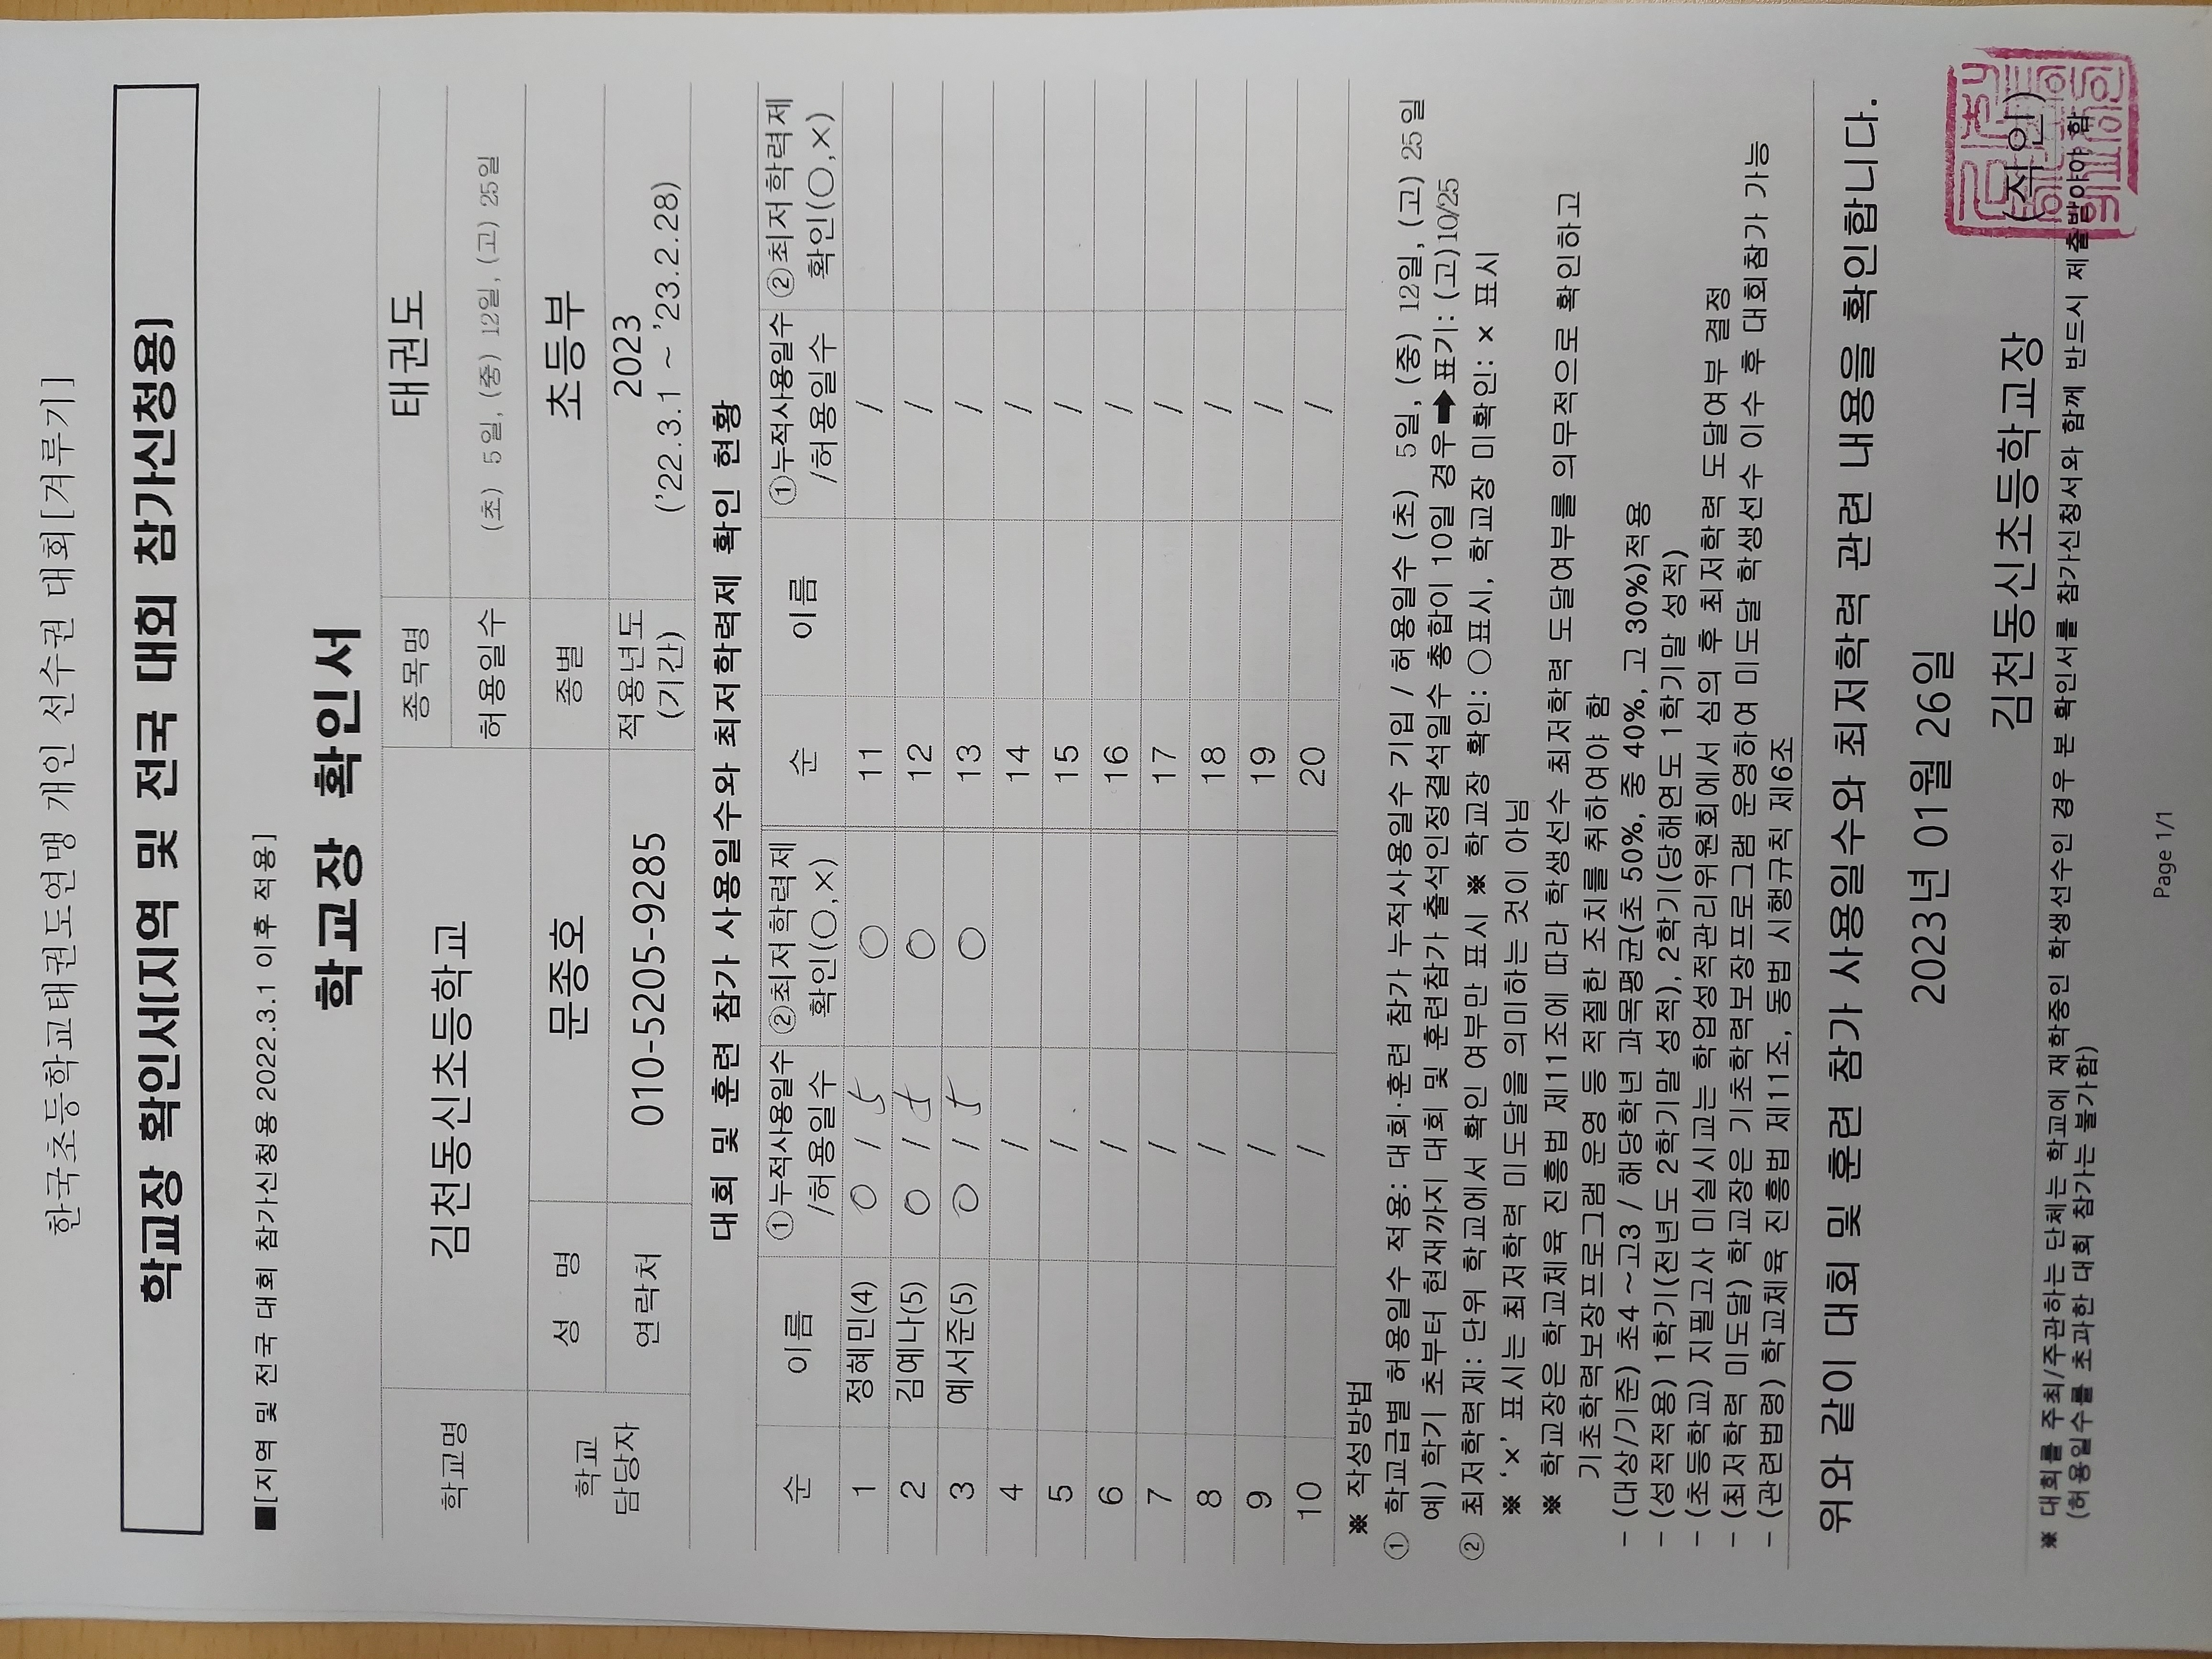 한국초등학교태권도연맹 개인 선수권 대회[겨루기]
학교장 확인서[지역 및 전국 대회 참가신청용]
■[지역 및 전국 대회 참가신청용 2022.3.1 이후 적용]
학교장 확인서
학교명 김천동신초등학교 종목명 태권도
허용일수 (초) 5일, (중) 12일, (고) 25일
학교 담당자 성 명 문종호 종별 초등부
연락처 010-5205-9285 적용년도 (기간) 2023 ('22.3.1 ~ '23.2.28)
대회 및 훈련 참가 사용일수와 최저학력제 확인 현황
순 이름 ①누적사용일수 /허용일수 ②최저학력제 확인(○,×) 순 이름 ①누적사용일수 /허용일수 ②최저학력제 확인(○,×)
1 정혜민(4) 0 / 5 ○ 11 /
2 김예나(5) 0 / 5 ○ 12 /
3 예서준(5) 0 / 5 ○ 13 /
4 / 14 /
5 / 15 /
6 / 16 /
7 / 17 /
8 / 18 /
9 / 19 /
10 / 20 /
※ 작성방법
① 학교급별 허용일수 적용: 대회·훈련 참가 누적사용일수 기입 / 허용일수 (초) 5일, (중) 12일, (고) 25일
예) 학기 초부터 현재까지 대회 및 훈련참가 출석인정결석일수 총합이 10일 경우➡표기: (고)10/25
② 최저학력제: 단위 학교에서 확인 여부만 표시 ※ 학교장 확인: ○표시, 학교장 미확인: × 표시
※ '×' 표시는 최저학력 미도달을 의미하는 것이 아님
※ 학교장은 학교체육 진흥법 제11조에 따라 학생선수 최저학력 도달여부를 의무적으로 확인하고
기초학력보장프로그램 운영 등 적절한 조치를 취하여야 함
- (대상/기준) 초4 ~고3 / 해당학년 과목평균(초 50%, 중 40%, 고 30%)적용
- (성적적용) 1학기(전년도 2학기말 성적), 2학기(당해연도 1학기말 성적)
- (초등학교) 지필고사 미실시교는 학업성적관리위원회에서 심의 후 최저학력 도달여부 결정
- (최저학력 미도달) 학교장은 기초학력보장프로그램 운영하여 미도달 학생선수 이수 후 대회참가 가능
- (관련법령) 학교체육 진흥법 제11조, 동법 시행규칙 제6조
위와 같이 대회 및 훈련 참가 사용일수와 최저학력 관련 내용을 확인합니다.
2023년 01월 26일
김천동신초등학교장 (직인)
※ 대회를 주최/주관하는 단체는 학교에 재학중인 학생선수인 경우 본 확인서를 참가신청서와 함께 반드시 제출받아야 함
(허용일수를 초과한 대회 참가는 불가함)
Page 1/1